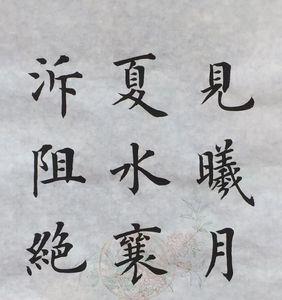 見曦月
夏水襄
泝阻絕